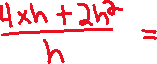 4xh + 2h² / h =